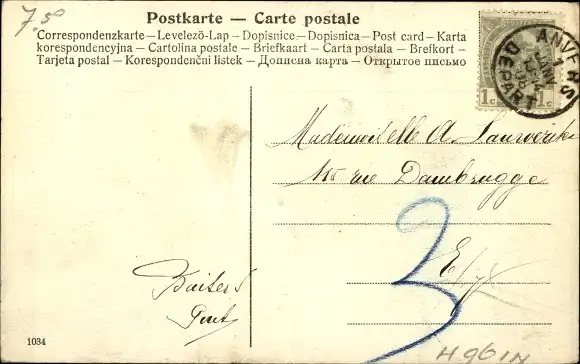 7.50
Postkarte — Carte postale
Correspondenzkarte — Levelező-Lap — Dopisnice — Dopisnica — Post card — Karta
korespondencyjna — Cartolina postale — Briefkaart — Carta postala — Brefkort —
Tarjeta postal — Korespondenčni listek — Дописна карта — Открытое письмо
ANVERS
DEPART
1 JANV
1c 1c
Mademoiselle A. Lauweriks
rue Dambrugge
E/V
3
Baisers
1034
H96IN